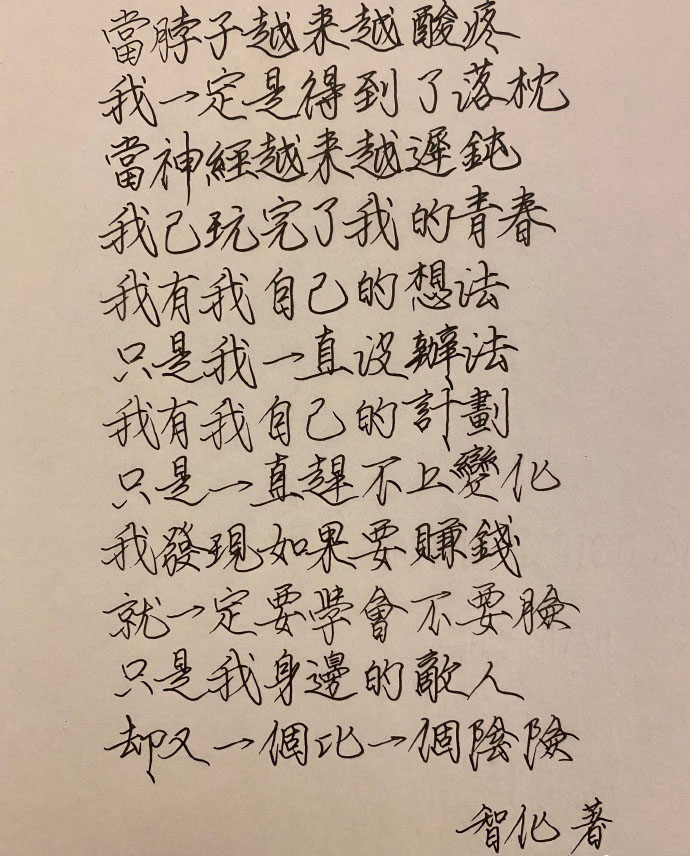 當脖子越来越酸疼
我一定是得到了落枕
當神經越来越遲鈍
我已玩完了我的青春
我有我自己的想法
只是我一直没辦法
我有我自己的計劃
只是一直趕不上變化
我發現如果要賺錢
就一定要學會不要臉
只是我身邊的敵人
却又一個比一個陰險
智化著